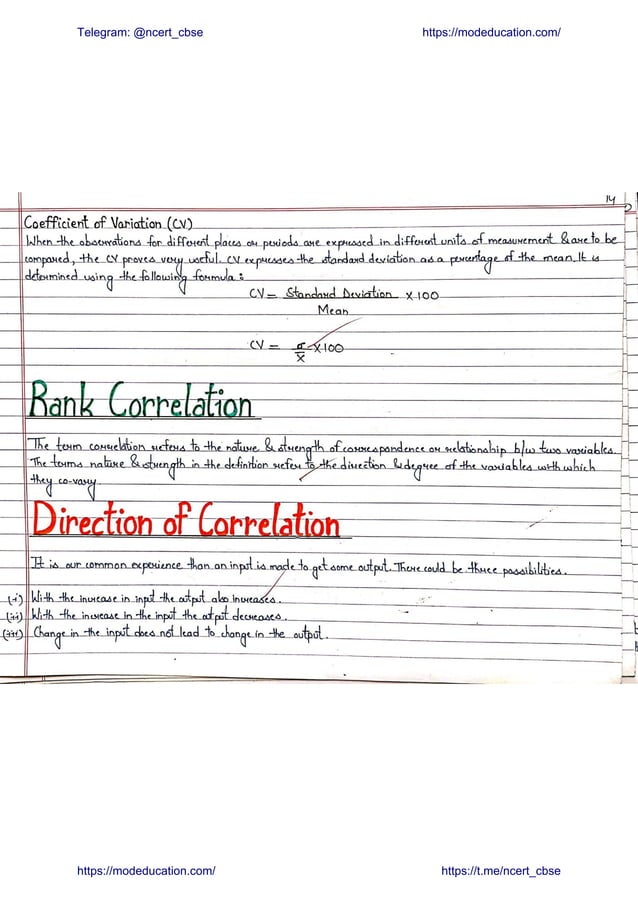 Telegram: @ncert_cbse https://modeducation.com/
14
Coefficient of Variation (CV)
When the observations for different places or periods are expressed in different units of measurement & are to be
compared, the CV proves very useful. CV expresses the standard deviation as a percentage of the mean. It is
determined using the following formula :
CV = Standard Deviation × 100
Mean
CV = σ × 100
X̅
Rank Correlation
The term correlation refers to the nature & strength of correspondence or relationship b/w two variables.
The terms nature & strength in the definition refer to the direction & degree of the variables with which
they co-vary.
Direction of Correlation
It is our common experience than an input is made to get some output. There could be three possibilities.
(i) With the increase in input the output also increases.
(ii) With the increase in the input the output decreases.
(iii) Change in the input does not lead to change in the output.
https://modeducation.com/ https://t.me/ncert_cbse